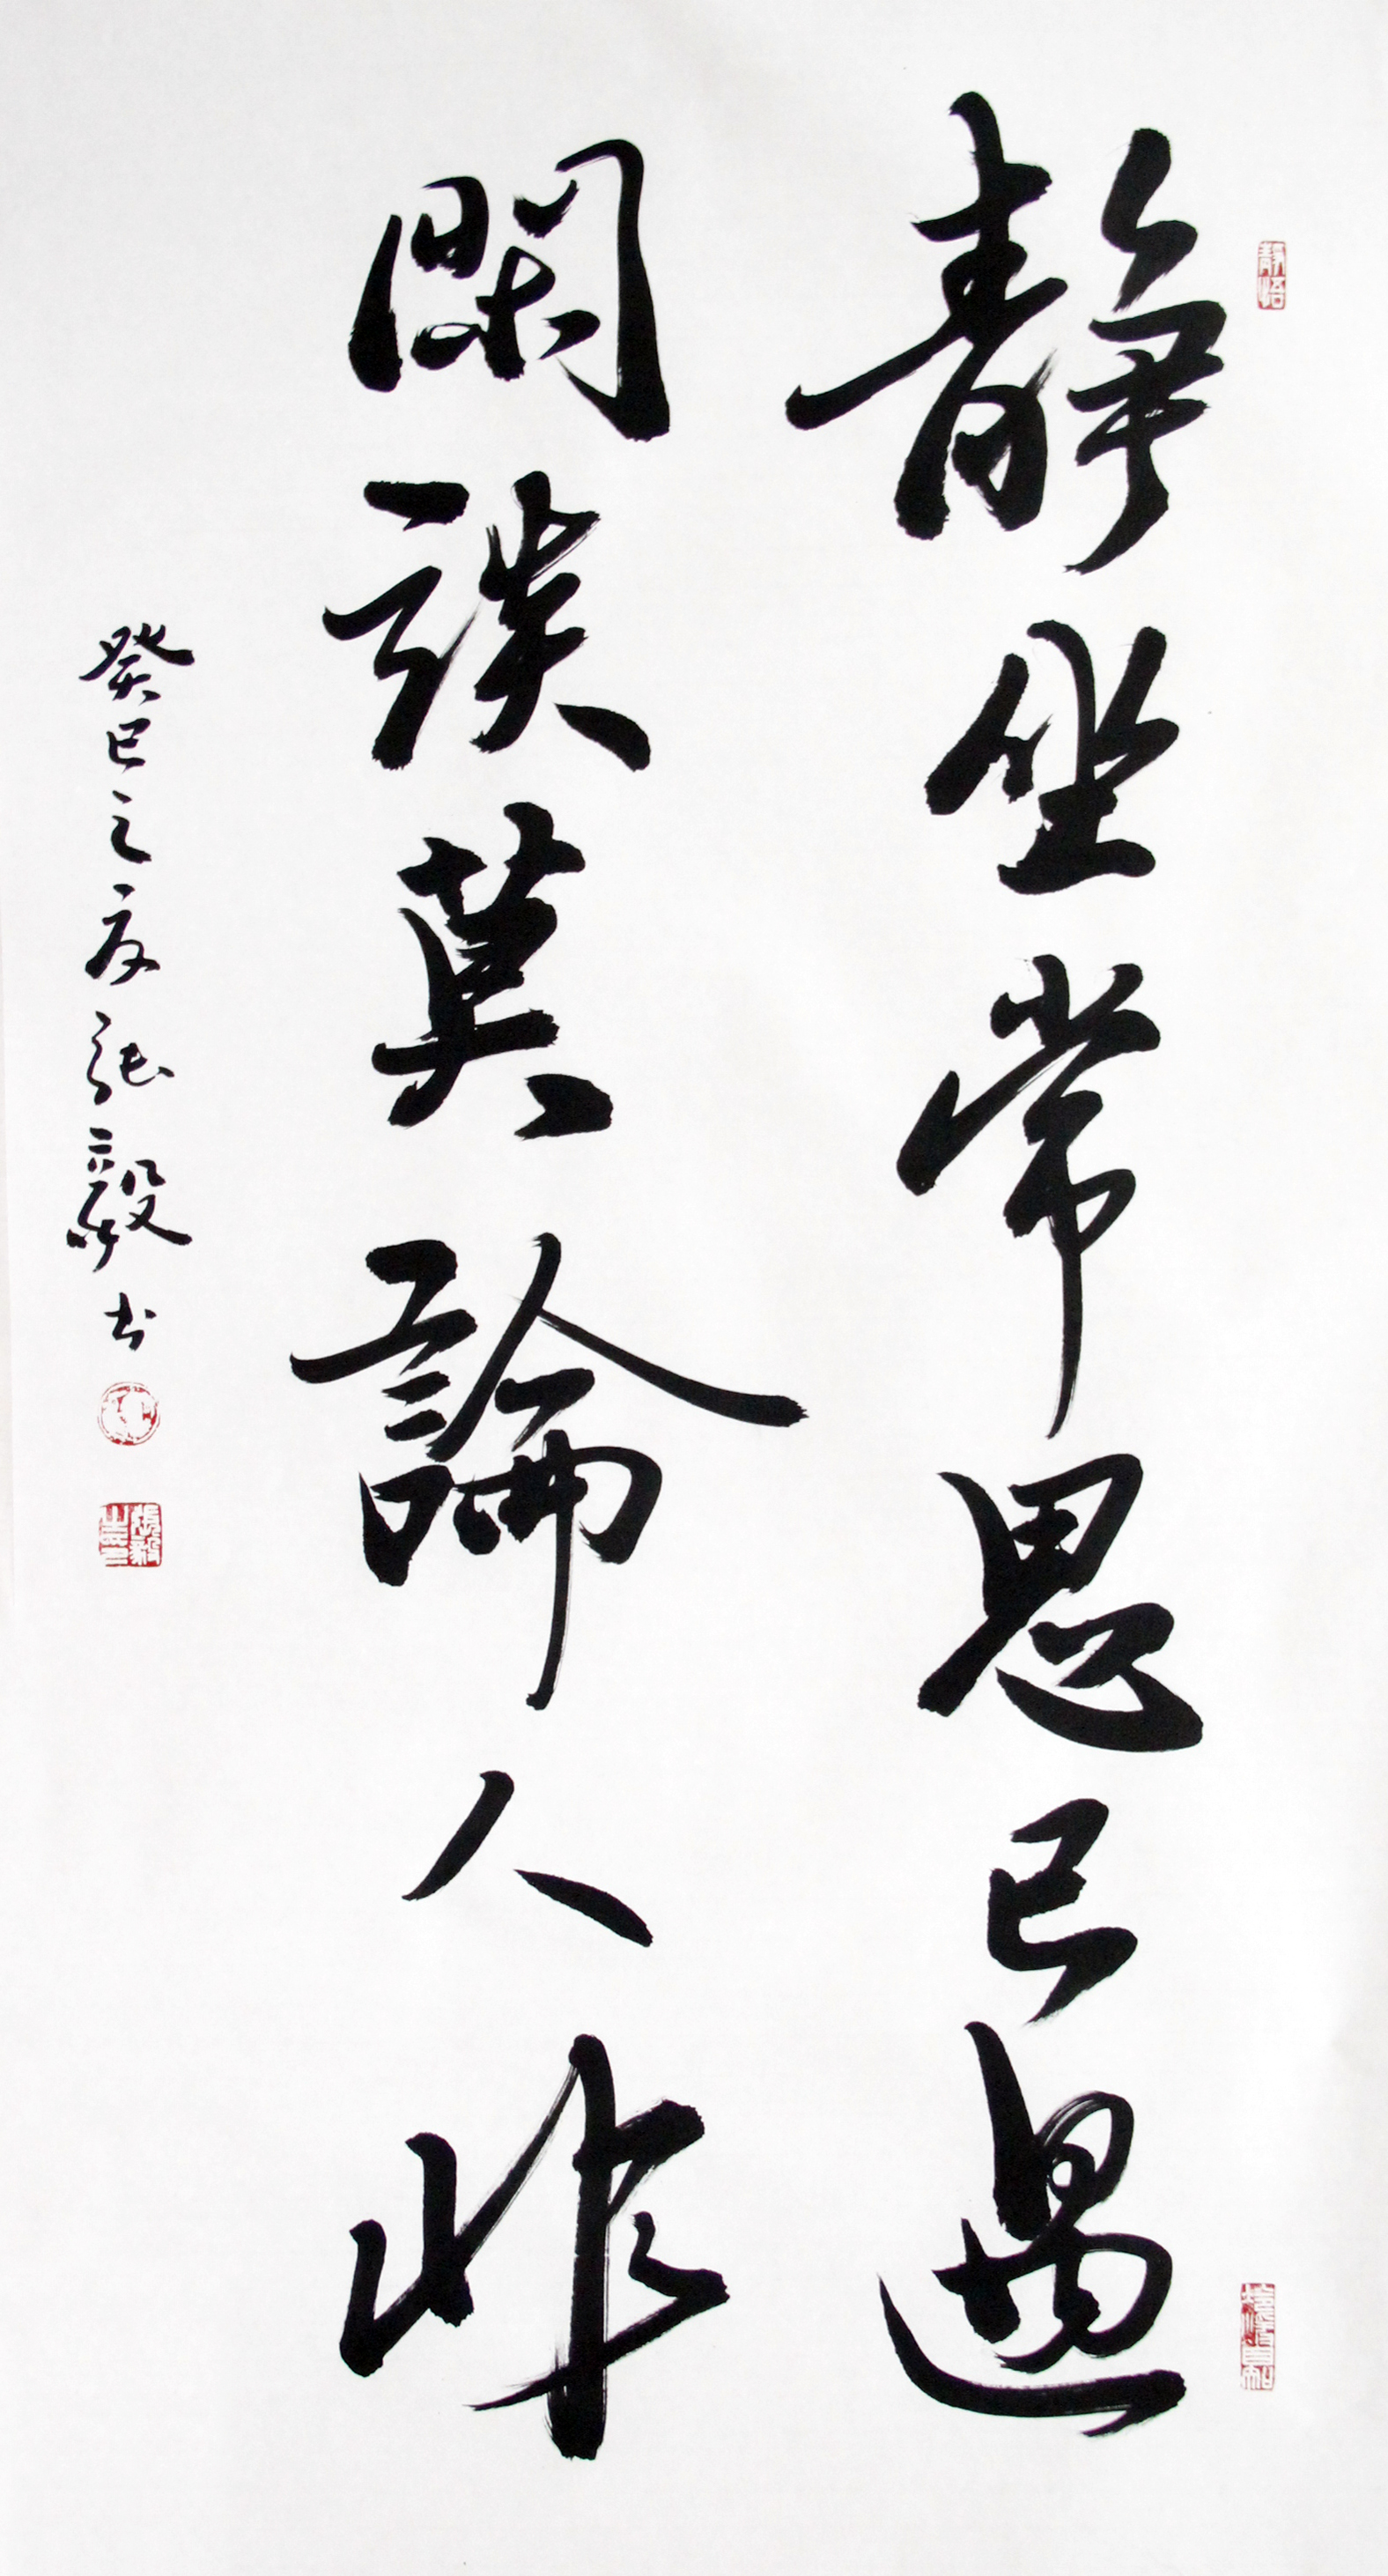 靜坐常思己過
閑談莫論人非
癸巳之夏張毅書
靜悟